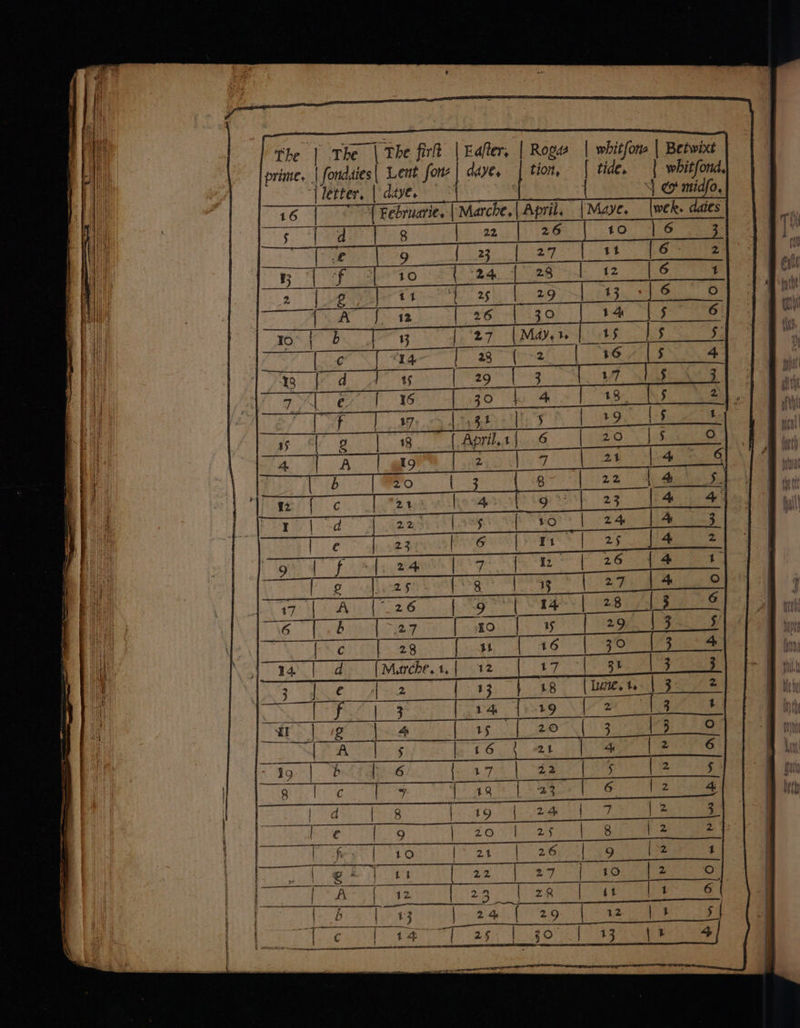 The | The | The firſt | Eaſter, | Rogas | whitſons | Betwixt
prime. | ſondaies | Lent ſons | daye. | tion, | tide. | whitſond,
letter. | daye. | & midſo,
16 | Februarie. | Marche. | April. | Maye. | wek. daies
5 | d | 8 | 22 | 26 | 10 | 6 3
e | 9 | 23 | 27 | 11 | 6 2
13 | f | 10 | 24 | 28 | 12 | 6 1
2 | g | 11 | 25 | 29 | 13 | 6 0
A | 12 | 26 | 30 | 14 | 5 6
10 | b | 13 | 27 | May, 1. | 15 | 5 5
c | 14 | 28 | 2 | 16 | 5 4
18 | d | 15 | 29 | 3 | 17 | 5 3
7 | e | 16 | 30 | 4 | 18 | 5 2
f | 17 | 31 | 5 | 19 | 5 1
15 | g | 18 | April, 1 | 6 | 20 | 5 0
4 | A | 19 | 2 | 7 | 21 | 4 6
b | 20 | 3 | 8 | 22 | 4 5
12 | c | 21 | 4 | 9 | 23 | 4 4
1 | d | 22 | 5 | 10 | 24 | 4 3
e | 23 | 6 | 11 | 25 | 4 2
9 | f | 24 | 7 | 12 | 26 | 4 1
g | 25 | 8 | 13 | 27 | 4 0
17 | A | 26 | 9 | 14 | 28 | 3 6
6 | b | 27 | 10 | 15 | 29 | 3 5
c | 28 | 11 | 16 | 30 | 3 4
14 | d | Marche. 1. | 12 | 17 | 31 | 3 3
3 | e | 2 | 13 | 18 | Iune, 1. | 3 2
f | 3 | 14 | 19 | 2 | 3 1
11 | g | 4 | 15 | 20 | 3 | 3 0
A | 5 | 16 | 21 | 4 | 2 6
19 | b | 6 | 17 | 22 | 5 | 2 5
8 | c | 7 | 18 | 23 | 6 | 2 4
d | 8 | 19 | 24 | 7 | 2 3
e | 9 | 20 | 25 | 8 | 2 2
f | 10 | 21 | 26 | 9 | 2 1
g | 11 | 22 | 27 | 10 | 2 0
A | 12 | 23 | 28 | 11 | 1 6
b | 13 | 24 | 29 | 12 | 1 5
c | 14 | 25 | 30 | 13 | 1 4